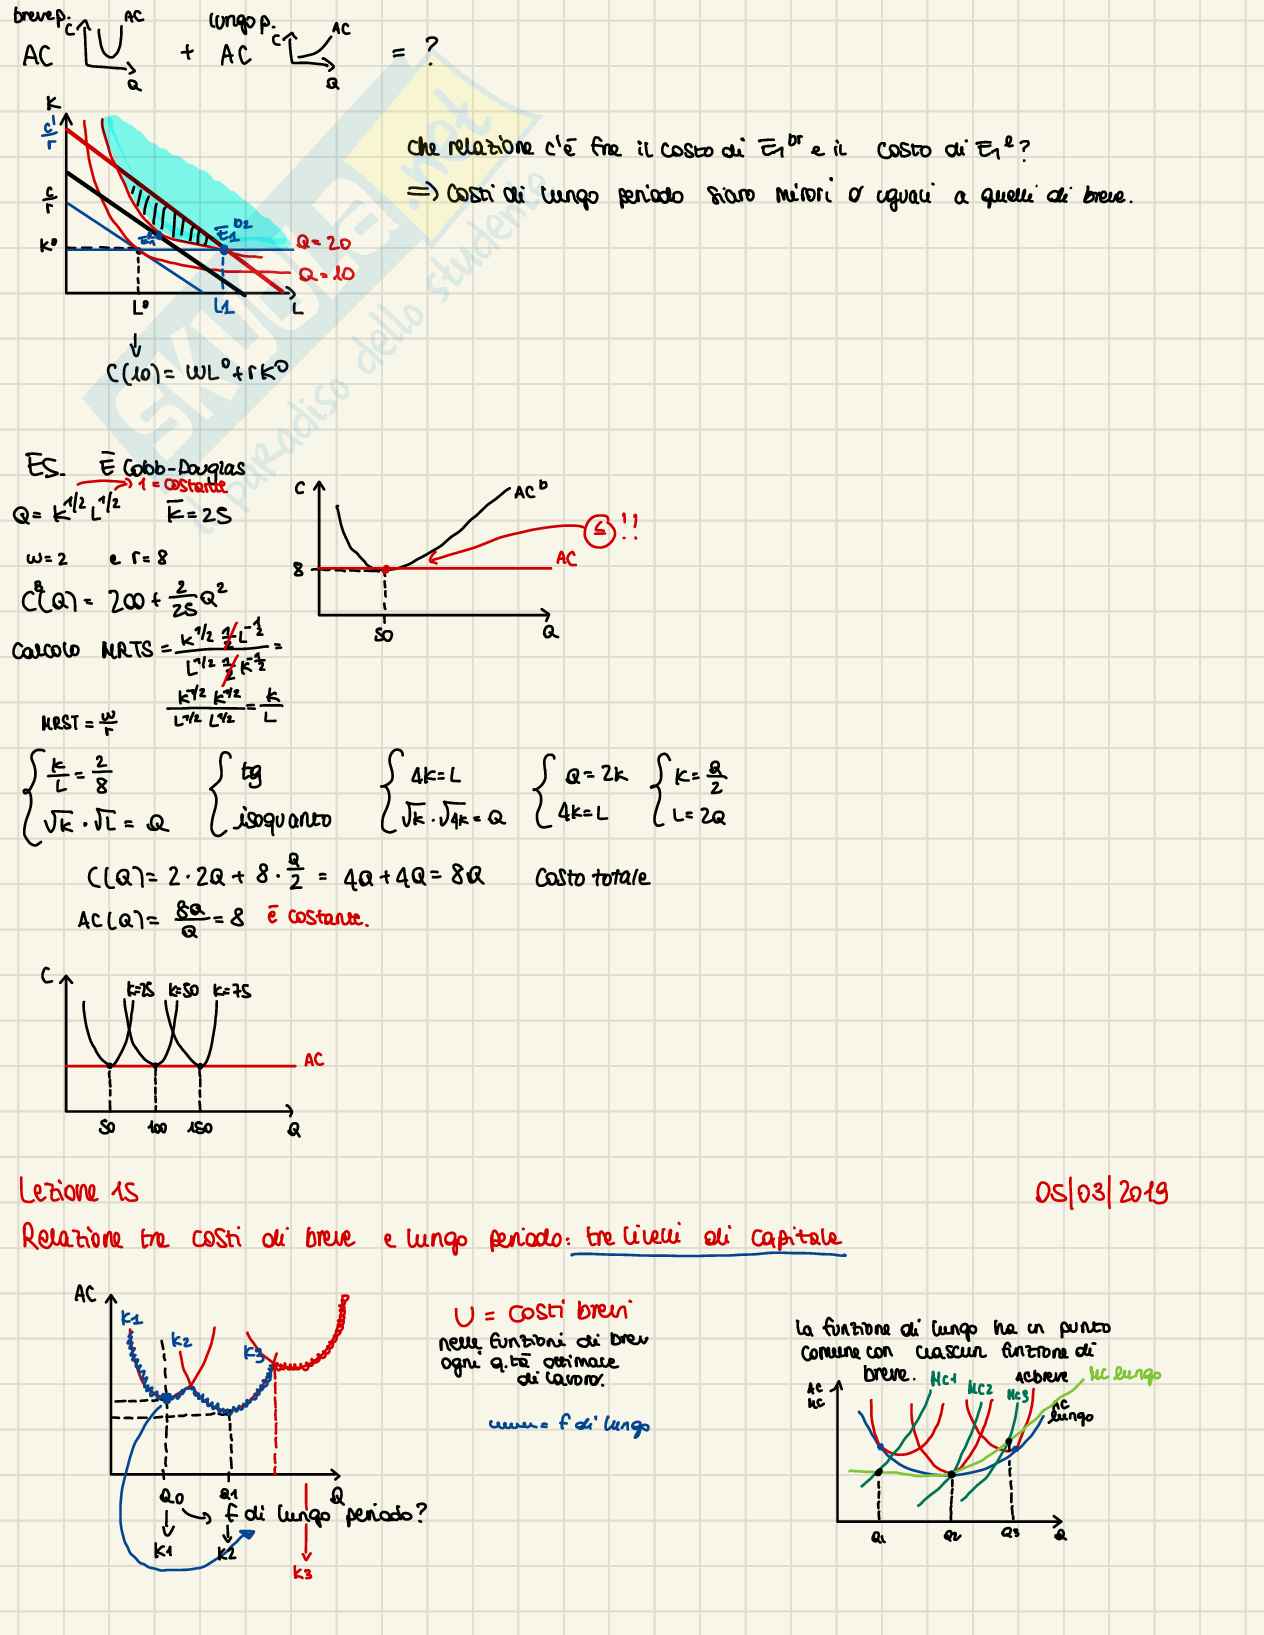 breve p.
lungo p.
C AC C AC
AC + AC = ?
Q Q
K
C'/r
C/r
K⁰
E̅₁ᵇʳ
Q=20
Q=10
L⁰ L1 L
che relazione c'è fra il costo di E̅₁ᵇʳ e il costo di E̅₁ᵉ?
=> costi di lungo periodo siano minori o uguali a quelli di breve.
C(10) = WL⁰ + rK⁰
SKUOLA.net
il paradiso dello studente
ES. È Cobb-Douglas
1 = costante
Q = K^1/2 L^1/2 K̅ = 25
w=2 e r=8
C^B(Q) = 200 + 2/25 Q²
C AC^b
S !!
8 AC
50 Q
Calcolo MRTS = K^1/2 1/2 L^-1/2 / L^1/2 1/2 K^-1/2 =
K^1/2 K^1/2 / L^1/2 L^1/2 = K/L
MRST = w/r
{ K/L = 2/8 { tg { 4K=L { Q=2K { K=Q/2
√K · √L = Q isoquanto √K · √4K = Q 4K=L L=2Q
C(Q) = 2·2Q + 8·Q/2 = 4Q+4Q = 8Q costo totale
AC(Q) = 8Q/Q = 8 è costante.
C
K=25 K=50 K=75
AC
50 100 150 Q
Lezione 15 05/03/2019
Relazione tra costi di breve e lungo periodo: tre livelli di capitale
AC
K1 K2 K3
Q0 Q1 Q
f di lungo periodo?
K1 K2
K3
U = costi brevi
nelle funzioni di brev
ogni q.tà ottimale
di lavoro.
= f di lungo
la funzione di lungo ha un punto
comune con ciascun funzione di
breve.
AC
MC
MC1 MC2 MC3 ACbreve MC lungo
AC
lungo
Q1 Q2 Q3 Q